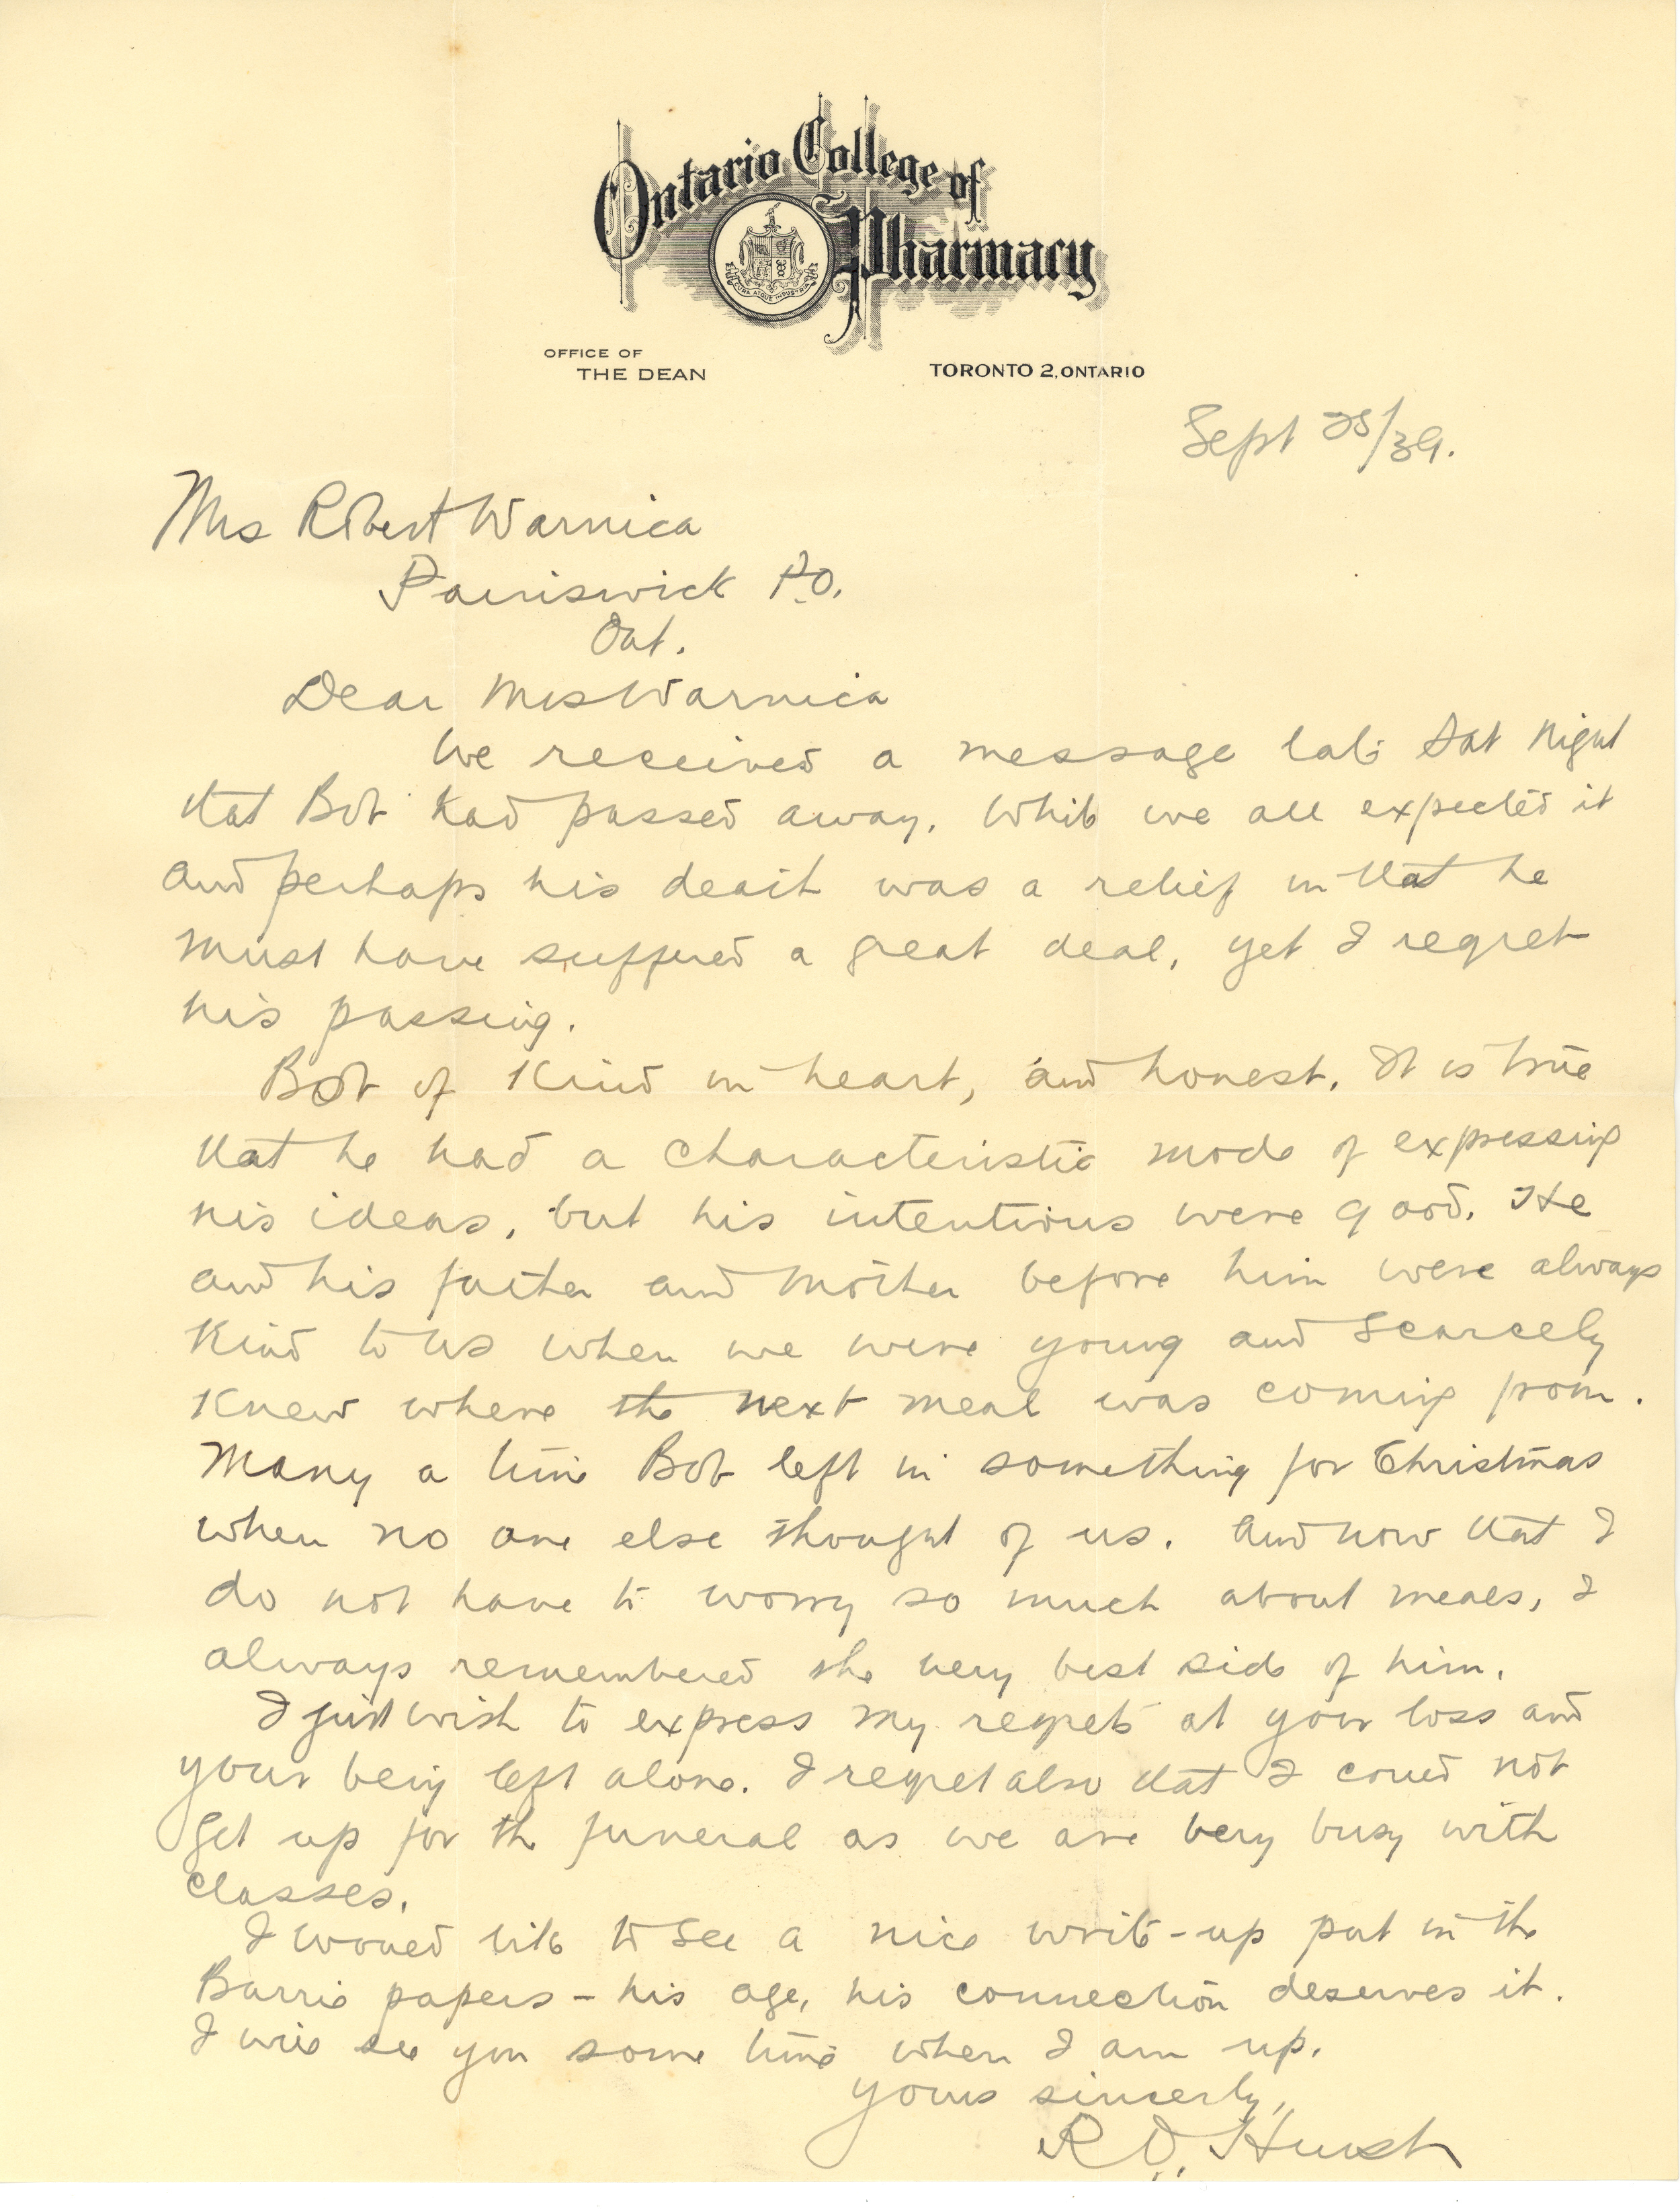 Ontario College of
Pharmacy
CURA ATQUE INDUSTRIA
OFFICE OF
THE DEAN
TORONTO 2, ONTARIO
Sept 25/39.
Mrs Robert Warnica
Painswick P.O.
Ont.
Dear Mrs Warnica
We received a message late Sat night
that Bob had passed away. While we all expected it
and perhaps his death was a relief in that he
must have suffered a great deal, yet I regret
his passing.
Bob of kind in heart, and honest. It is true
that he had a characteristic mode of expressing
his ideas, but his intentions were good. He
and his father and mother before him were always
kind to us when we were young and scarcely
knew where the next meal was coming from.
Many a time Bob left in something for Christmas
when no one else thought of us. And now that I
do not have to worry so much about meals, I
always remembered the very best side of him.
I just wish to express my regrets at your loss and
your being left alone. I regret also that I could not
get up for the funeral as we are very busy with
classes.
I would like to see a nice write-up put in the
Barrie papers - his age, his connection deserves it.
I will see you some time when I am up.
yours sincerly,
R. O. Hurst